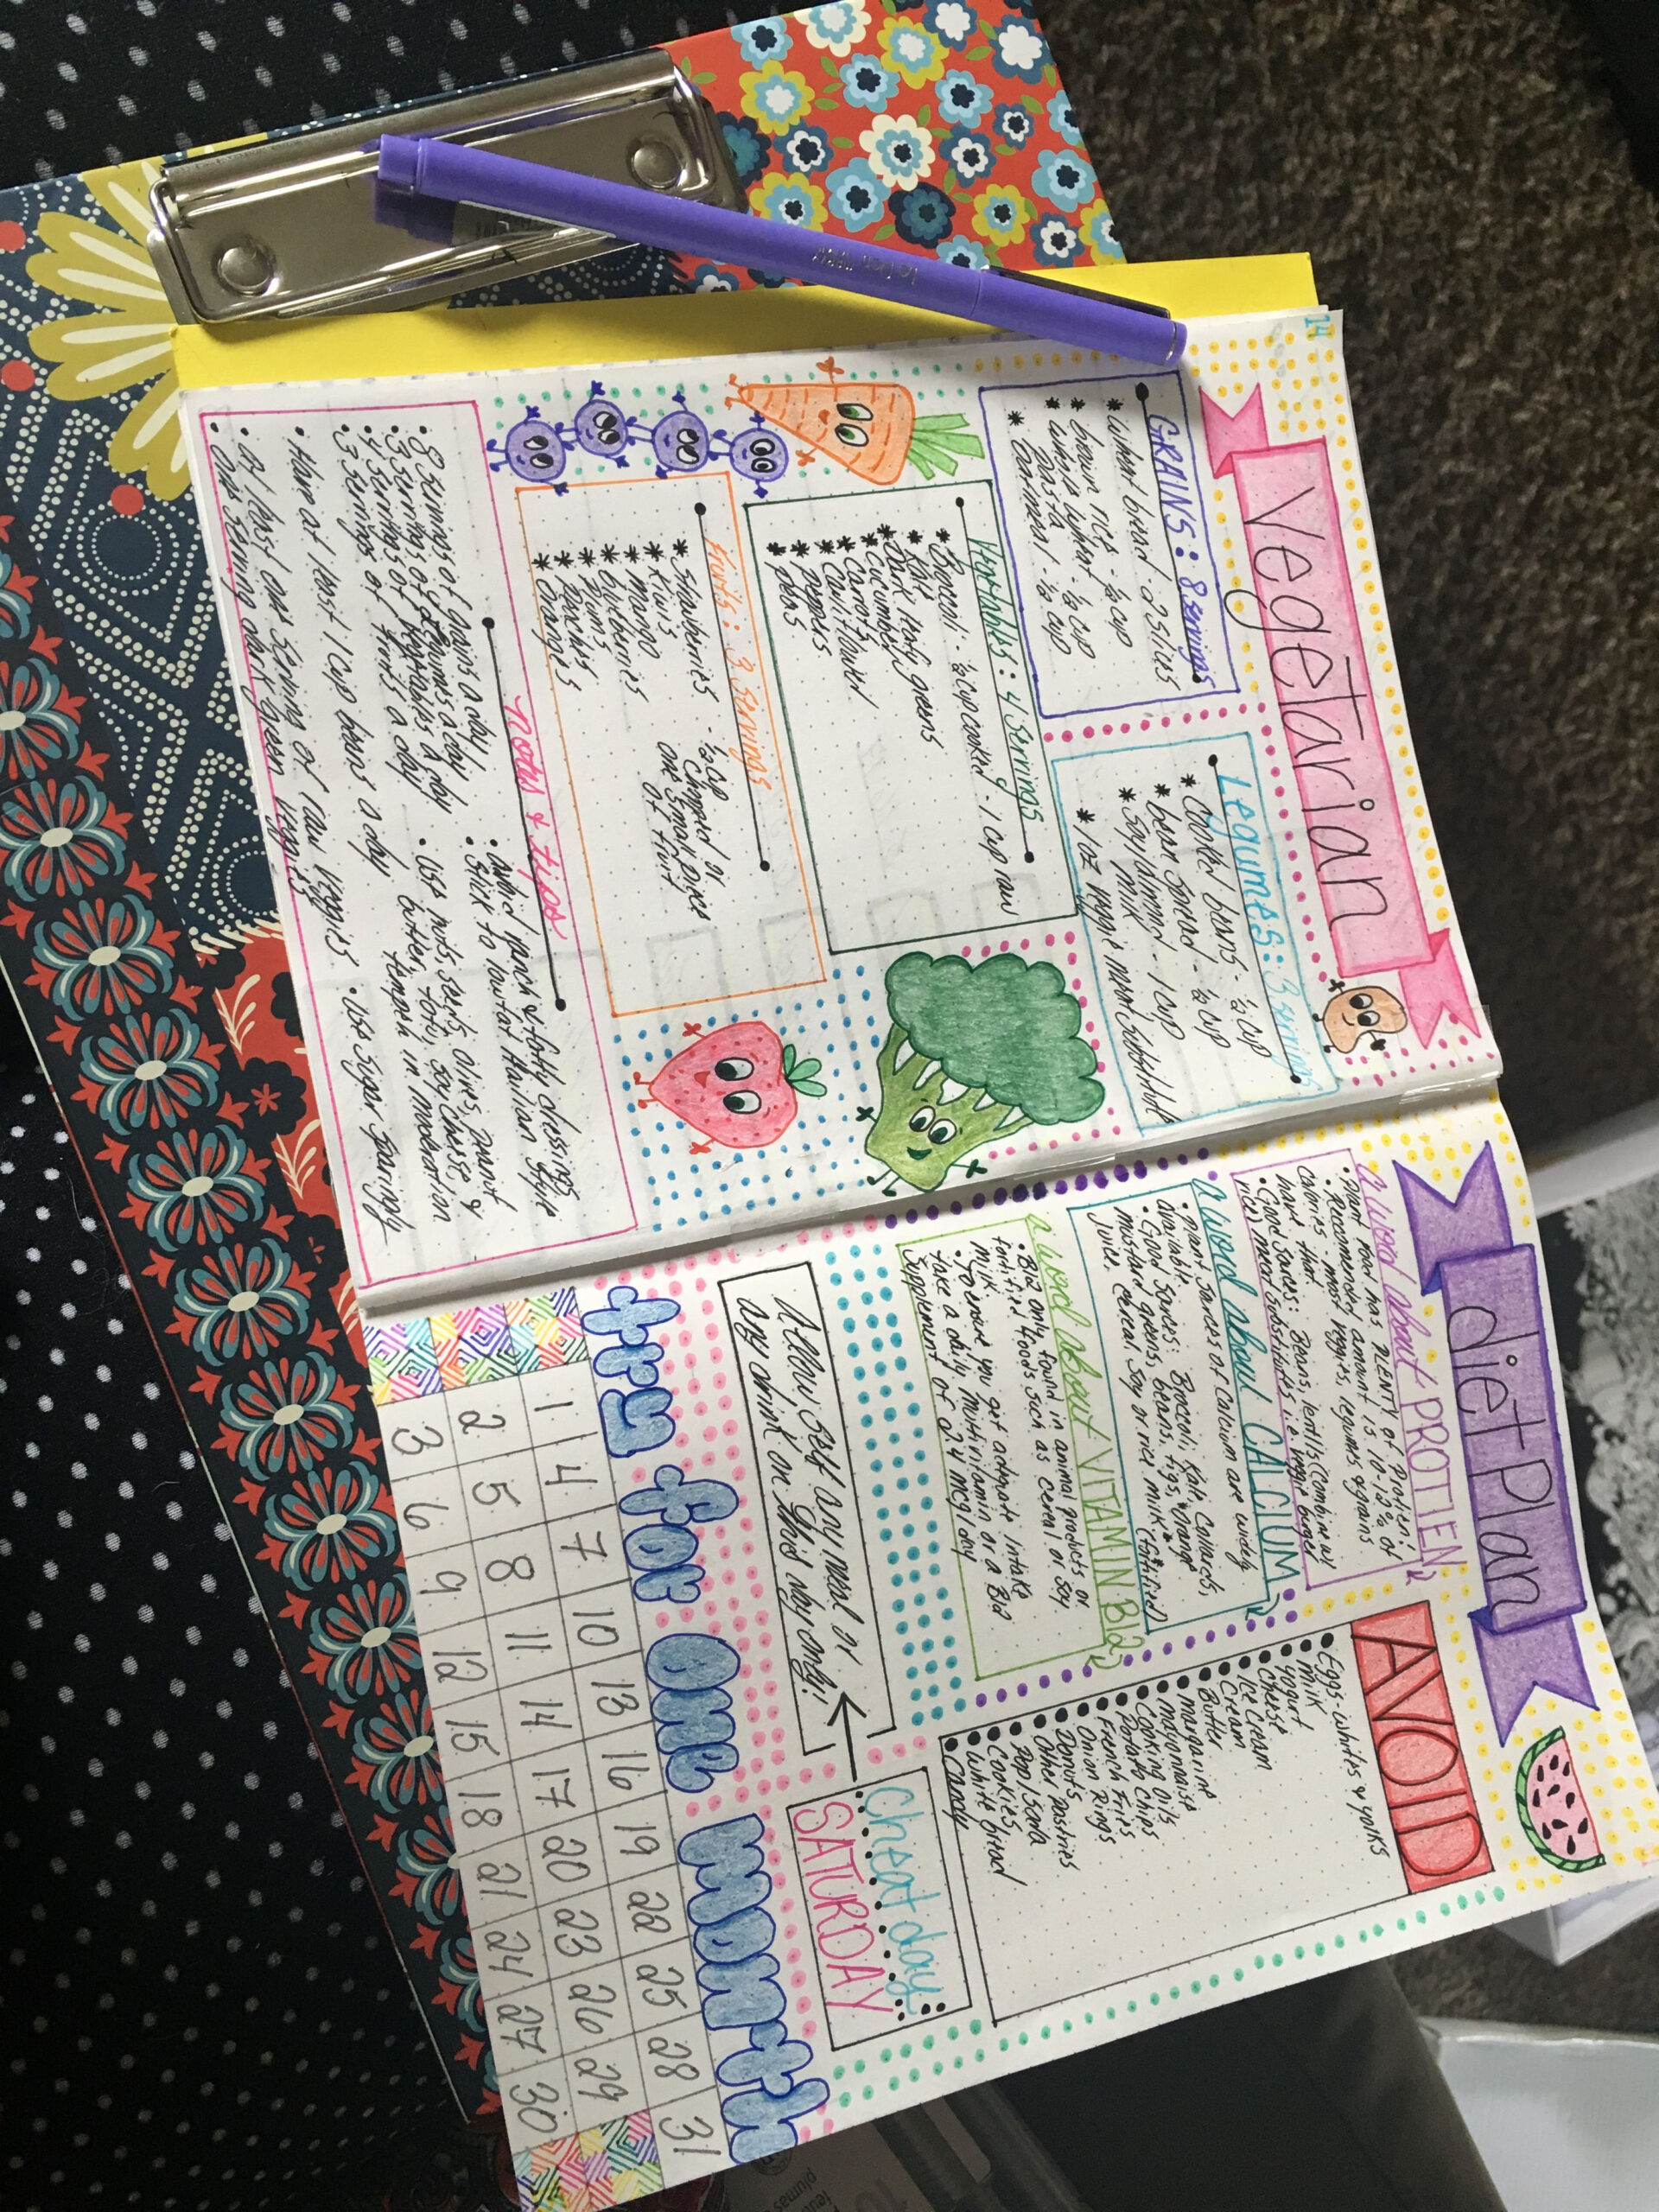 14
Vegetarian
GRAINS: 8 servings
* wheat bread - 2 slices
* brown rice - ½ cup
* whole wheat - ½ cup
pasta
* oatmeal - ½ cup
Legumes: 3 servings
* cooked beans - ½ cup
* bean spread - ½ cup
* Soy/almond - 1 cup
milk
* 1 oz veggie meat substitute
Vegetables: 4 servings
* Broccoli - ½ cup cooked - 1 cup raw
* kale
* Dark leafy greens
* Cucumber
* Carrots
* Cauliflower
* peppers
* peas
Fruits: 3 servings
* Strawberries - ½ cup
* kiwis chopped or
* mango one small piece
* blueberries of fruit
* plums
* peaches
* oranges
notes & tips
• 8 servings of grains a day
• 3 servings of legumes a day
• 4 servings of vegetables a day
• 3 servings of fruits a day
• Have at least 1 cup beans a day
• At least one serving of raw veggies
• one serving dark green veggies
• avoid ranch & fatty dressings
• Stick to low fat Italian style
• use nuts, seeds, olives, peanut
butter, tofu, soy cheese, &
tempeh in moderation
• use sugar sparingly
diet Plan
a word about PROTIEN
• Plant food has PLENTY of Protien!
• Reccomended amount is 10-12% of
calories - most veggies, legums & grains
have that.
• Good Sources: Beans, lentils (combine w/
rice) meat substitutes i.e. veggie burger
a word about CALCIUM
• Plant sources of Calcium are widely
available.
• Good Sources: Broccoli, kale, collards,
mustard greens, beans, figs, *orange
juice, *cereal, soy or rice milk *(fortified)
a word about VITAMIN B12
• B12 only found in animal products or
fortified foods such as cereal or soy
milk.
• To ensure you get adequate intake
take a daily multivitamin or a B12
supplement of a 2.4 mcg/day
AVOID
• Eggs - whites & yolks
• Milk
• yogurt
• Cheese
• Ice Cream
• Cream
• Butter
• margarine
• mayonnaise
• Cooking oils
• Potato Chips
• French Fries
• Onion Rings
• Donuts
• Other Pastries
• Pop/Soda
• Cookies
• White bread
• Candy
Allow self any meal or
any drink on this day only!
Cheat day
SATURDAY
try for one month
1 4 7 10 13 16 19 22 25 28 31
2 5 8 11 14 17 20 23 26 29
3 6 9 12 15 18 21 24 27 30
Le Pen